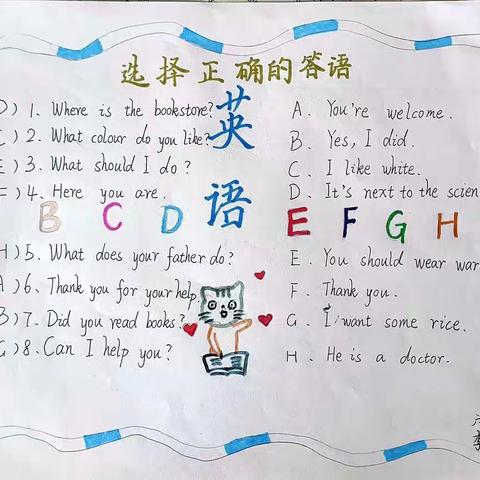 选择正确的答语
D) 1. Where is the bookstore?
C) 2. What colour do you like?
E) 3. What should I do?
F) 4. Here you are.
英
语
A. You're welcome.
B. Yes, I did.
C. I like white.
D. It's next to the scien
B C D E F G H
H) 5. What does your father do?
A) 6. Thank you for your help.
B) 7. Did you read books?
G) 8. Can I help you?
E. You should wear war
F. Thank you.
G. I want some rice.
H. He is a doctor.